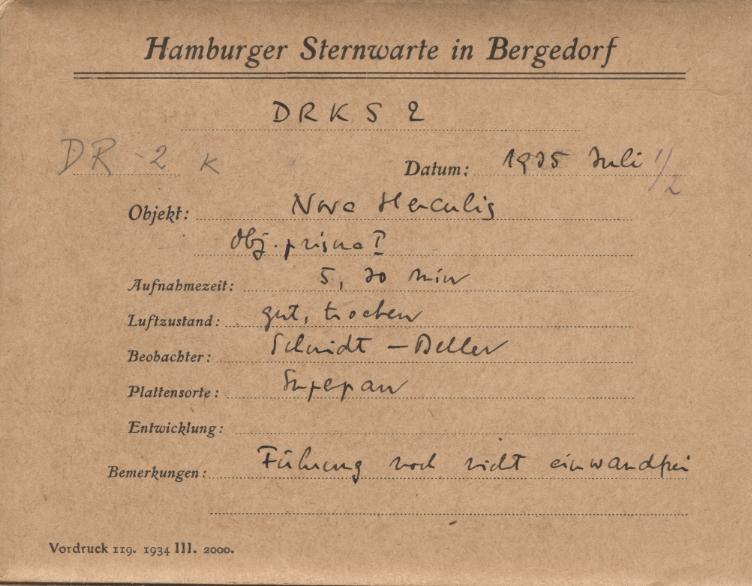 Hamburger Sternwarte in Bergedorf
DRKS 2
DR-2 K
Datum: 1935 Juli 1/2
Objekt: Nova Herculis
Obj. prisma I
Aufnahmezeit: 5, 20 min
Luftzustand: gut, trocken
Beobachter: Schmidt - Beller
Plattensorte: Superpan
Entwicklung:
Bemerkungen: Führung noch nicht einwandfrei
Vordruck 119. 1934 III. 2000.